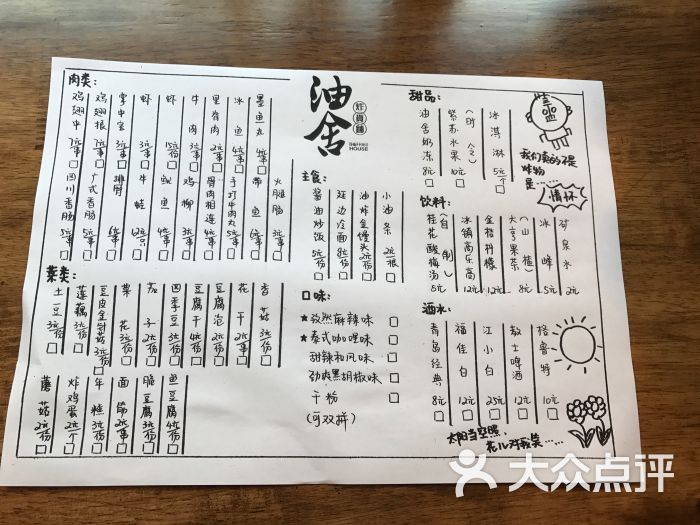 肉类:
鸡翅中 7元/串
鸡翅根 7元/串
掌中宝
虾 3元/串
虾 15元/份
牛肉 3元/串
里脊肉 2元/串
冰鱼 4元/串
墨鱼丸 4元/串
四川香肠 5元/串
广式香肠 5元/串
排骨
牛蛙
鱿鱼
鸡柳 3元/串
骨肉相连 4元/串
手打牛肉丸 5元/串
带鱼 6元/串
火腿肠 3元/串
菜类:
土豆 3元/份
莲藕 3元/份
豆皮金针菇 3元/份
菜花 3元/份
茄子 2元/份
四季豆 3元/份
豆腐干 4元/份
豆腐泡 2元/份
花干 2元/串
香菇 3元/份
蘑菇 2元/份
炸鸡蛋 2元/个
年糕 3元/份
面筋 2元/串
脆豆腐 3元/份
鱼豆腐 4元/份
油舍
炸货铺
THE FRIED
HOUSE
主食:
酱油炒饭 5元/份
延边冷面 8元/份
油炸金馒头 2元/份
小油条 2元/根
口味:
★孜然麻辣味
★泰式咖喱味
甜辣和风味
劲爽黑胡椒味
干粉
(可双拼)
甜品:
油舍奶冻 8元
紫苏水果 10元
(时令)
冰淇淋 5元/个
我们卖的不是
炸物
是……
情怀
饮料:
桂花酸梅汤 5元
(自制)
冰镇高乐高 12元
金桔柠檬 12元
大亨果茶 8元
(山楂)
冰峰 5元
矿泉水 2元
酒水:
青岛经典 8元
福佳白 12元
江小白 25元
教士啤酒 12元
格鲁特 10元
太阳当空照
花儿对我笑……
大众点评